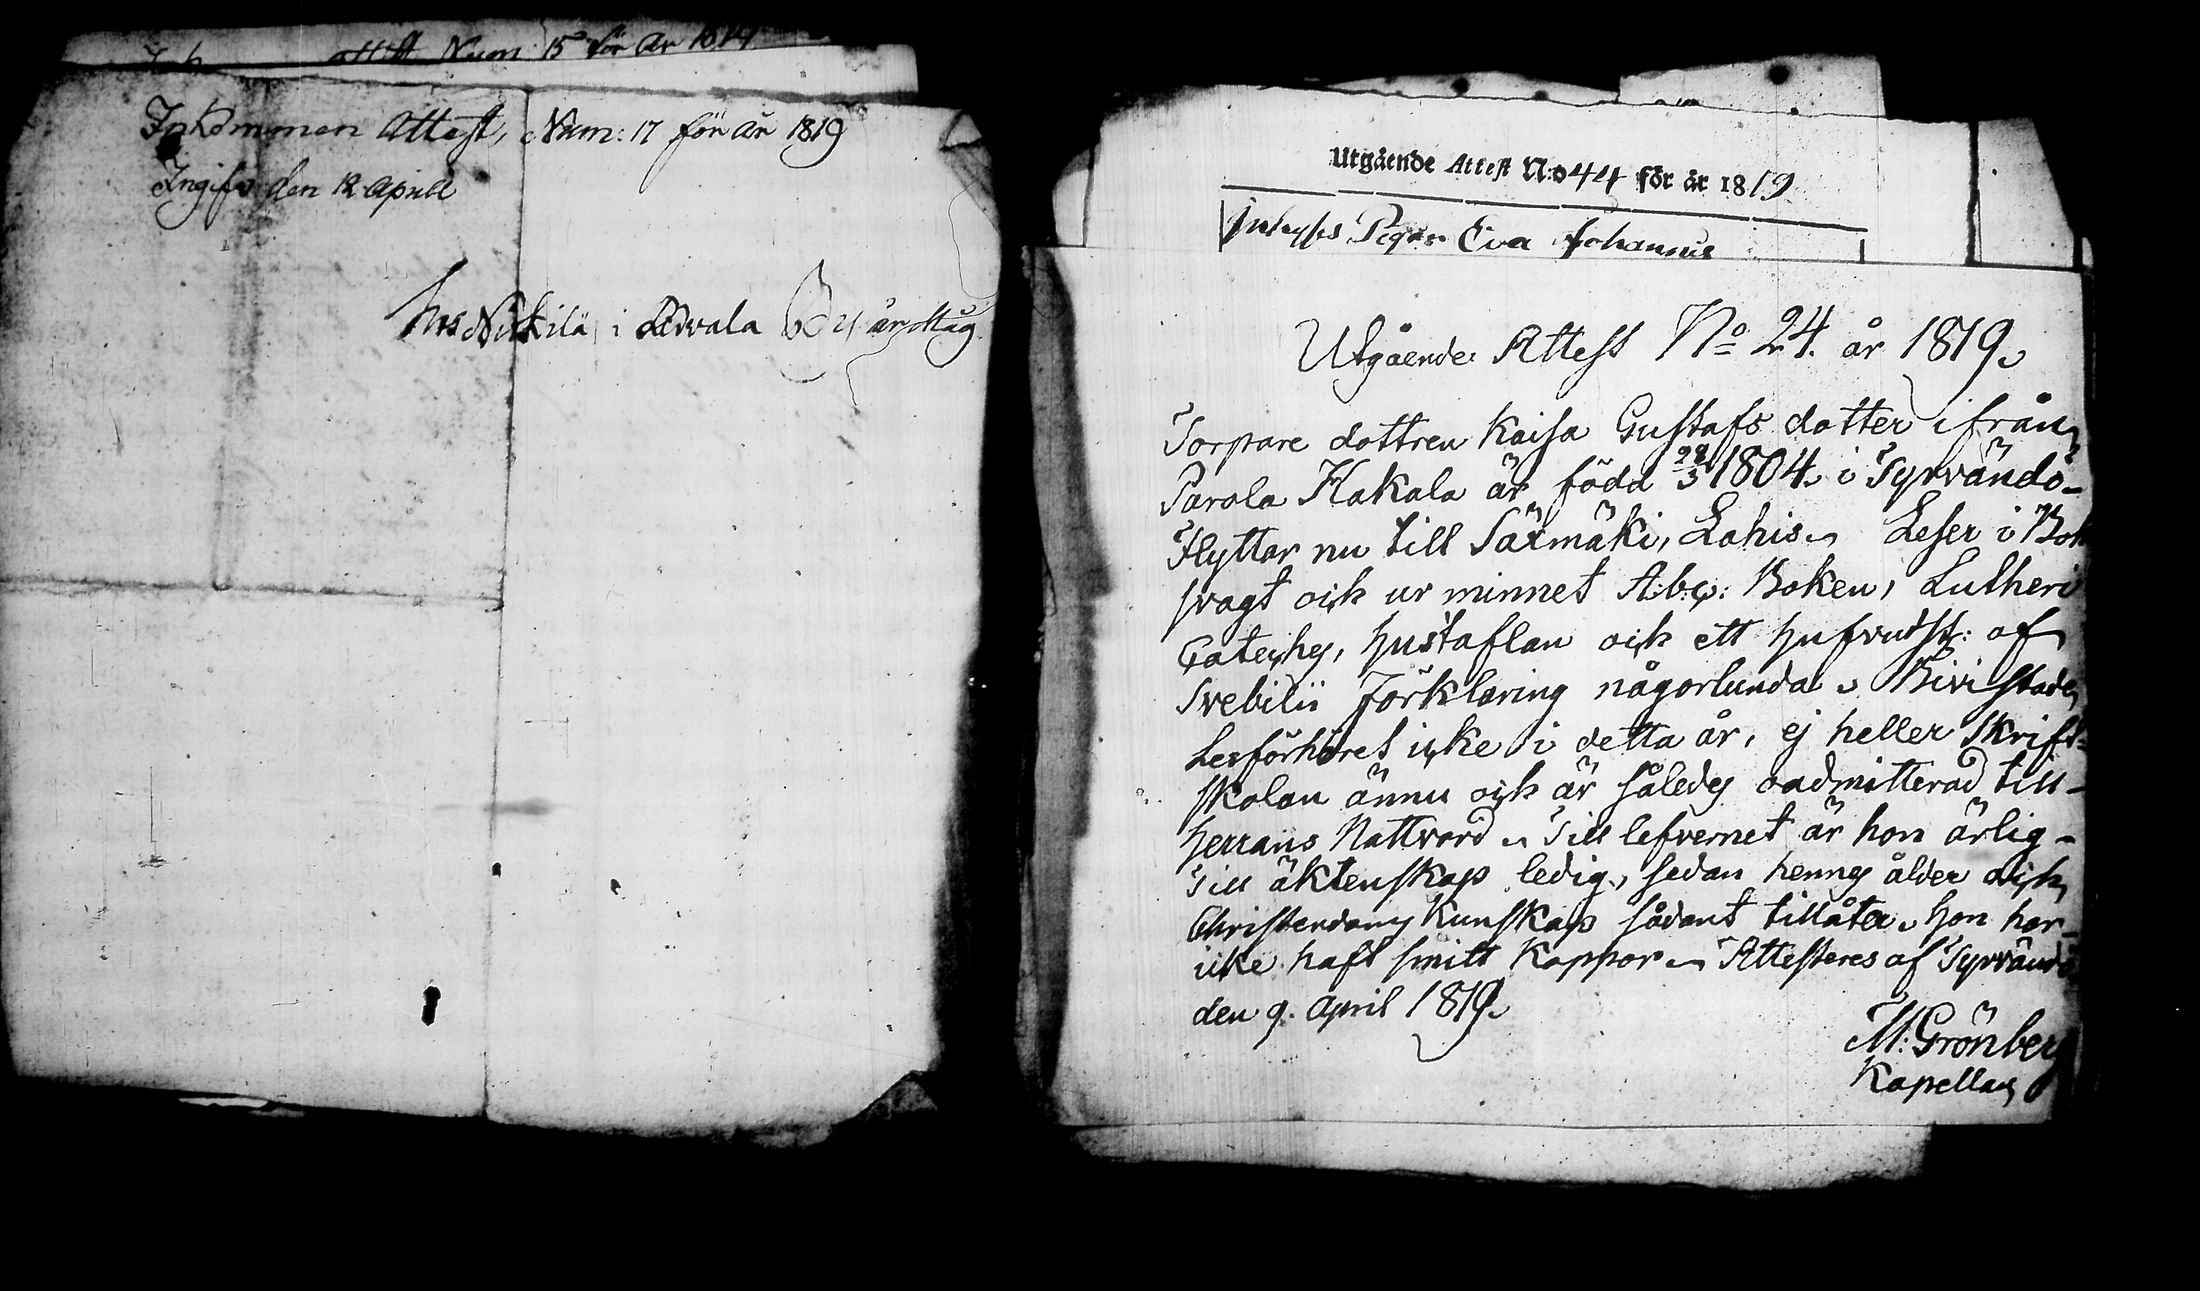 attest Num 15 för År 1819
Inkommen Attest, Num: 17 för år 1819
Ingifs den 12 Aprill
hos Nickilä i By
Utgående Attest N:o 44 för år 1819
Pigan Eva Johans
Utgående Attest No 24. år 1819.
Torpare dottren Kaisa Gustafs dotter ifrån
Parola Hakala är född 28/3 1804. i Tyrvändö-
Flyttar nu till Säxmäki, Lahis. Leser i Bok
svagt och ur minnet A.b.c: Boken, Lutheri
Cateches, hustaflan och ett hufvudst: af
Svebilii Förklaring någorlunda. Bivistade
Lesförhöret icke i detta år, ej heller Skrift=
skolan ännu och är således oadmitterad till-
Herrans Nattvard. Till lefvernet är hon ärlig-
Till äktenskap ledig, sedan hennes ålder och
Christendoms Kunskap sådant tillåter. Hon har
icke haft smitt Koppor. Attesteres af Tyrvändö
den 9. April 1819.
M: Grönberg
Kapellan